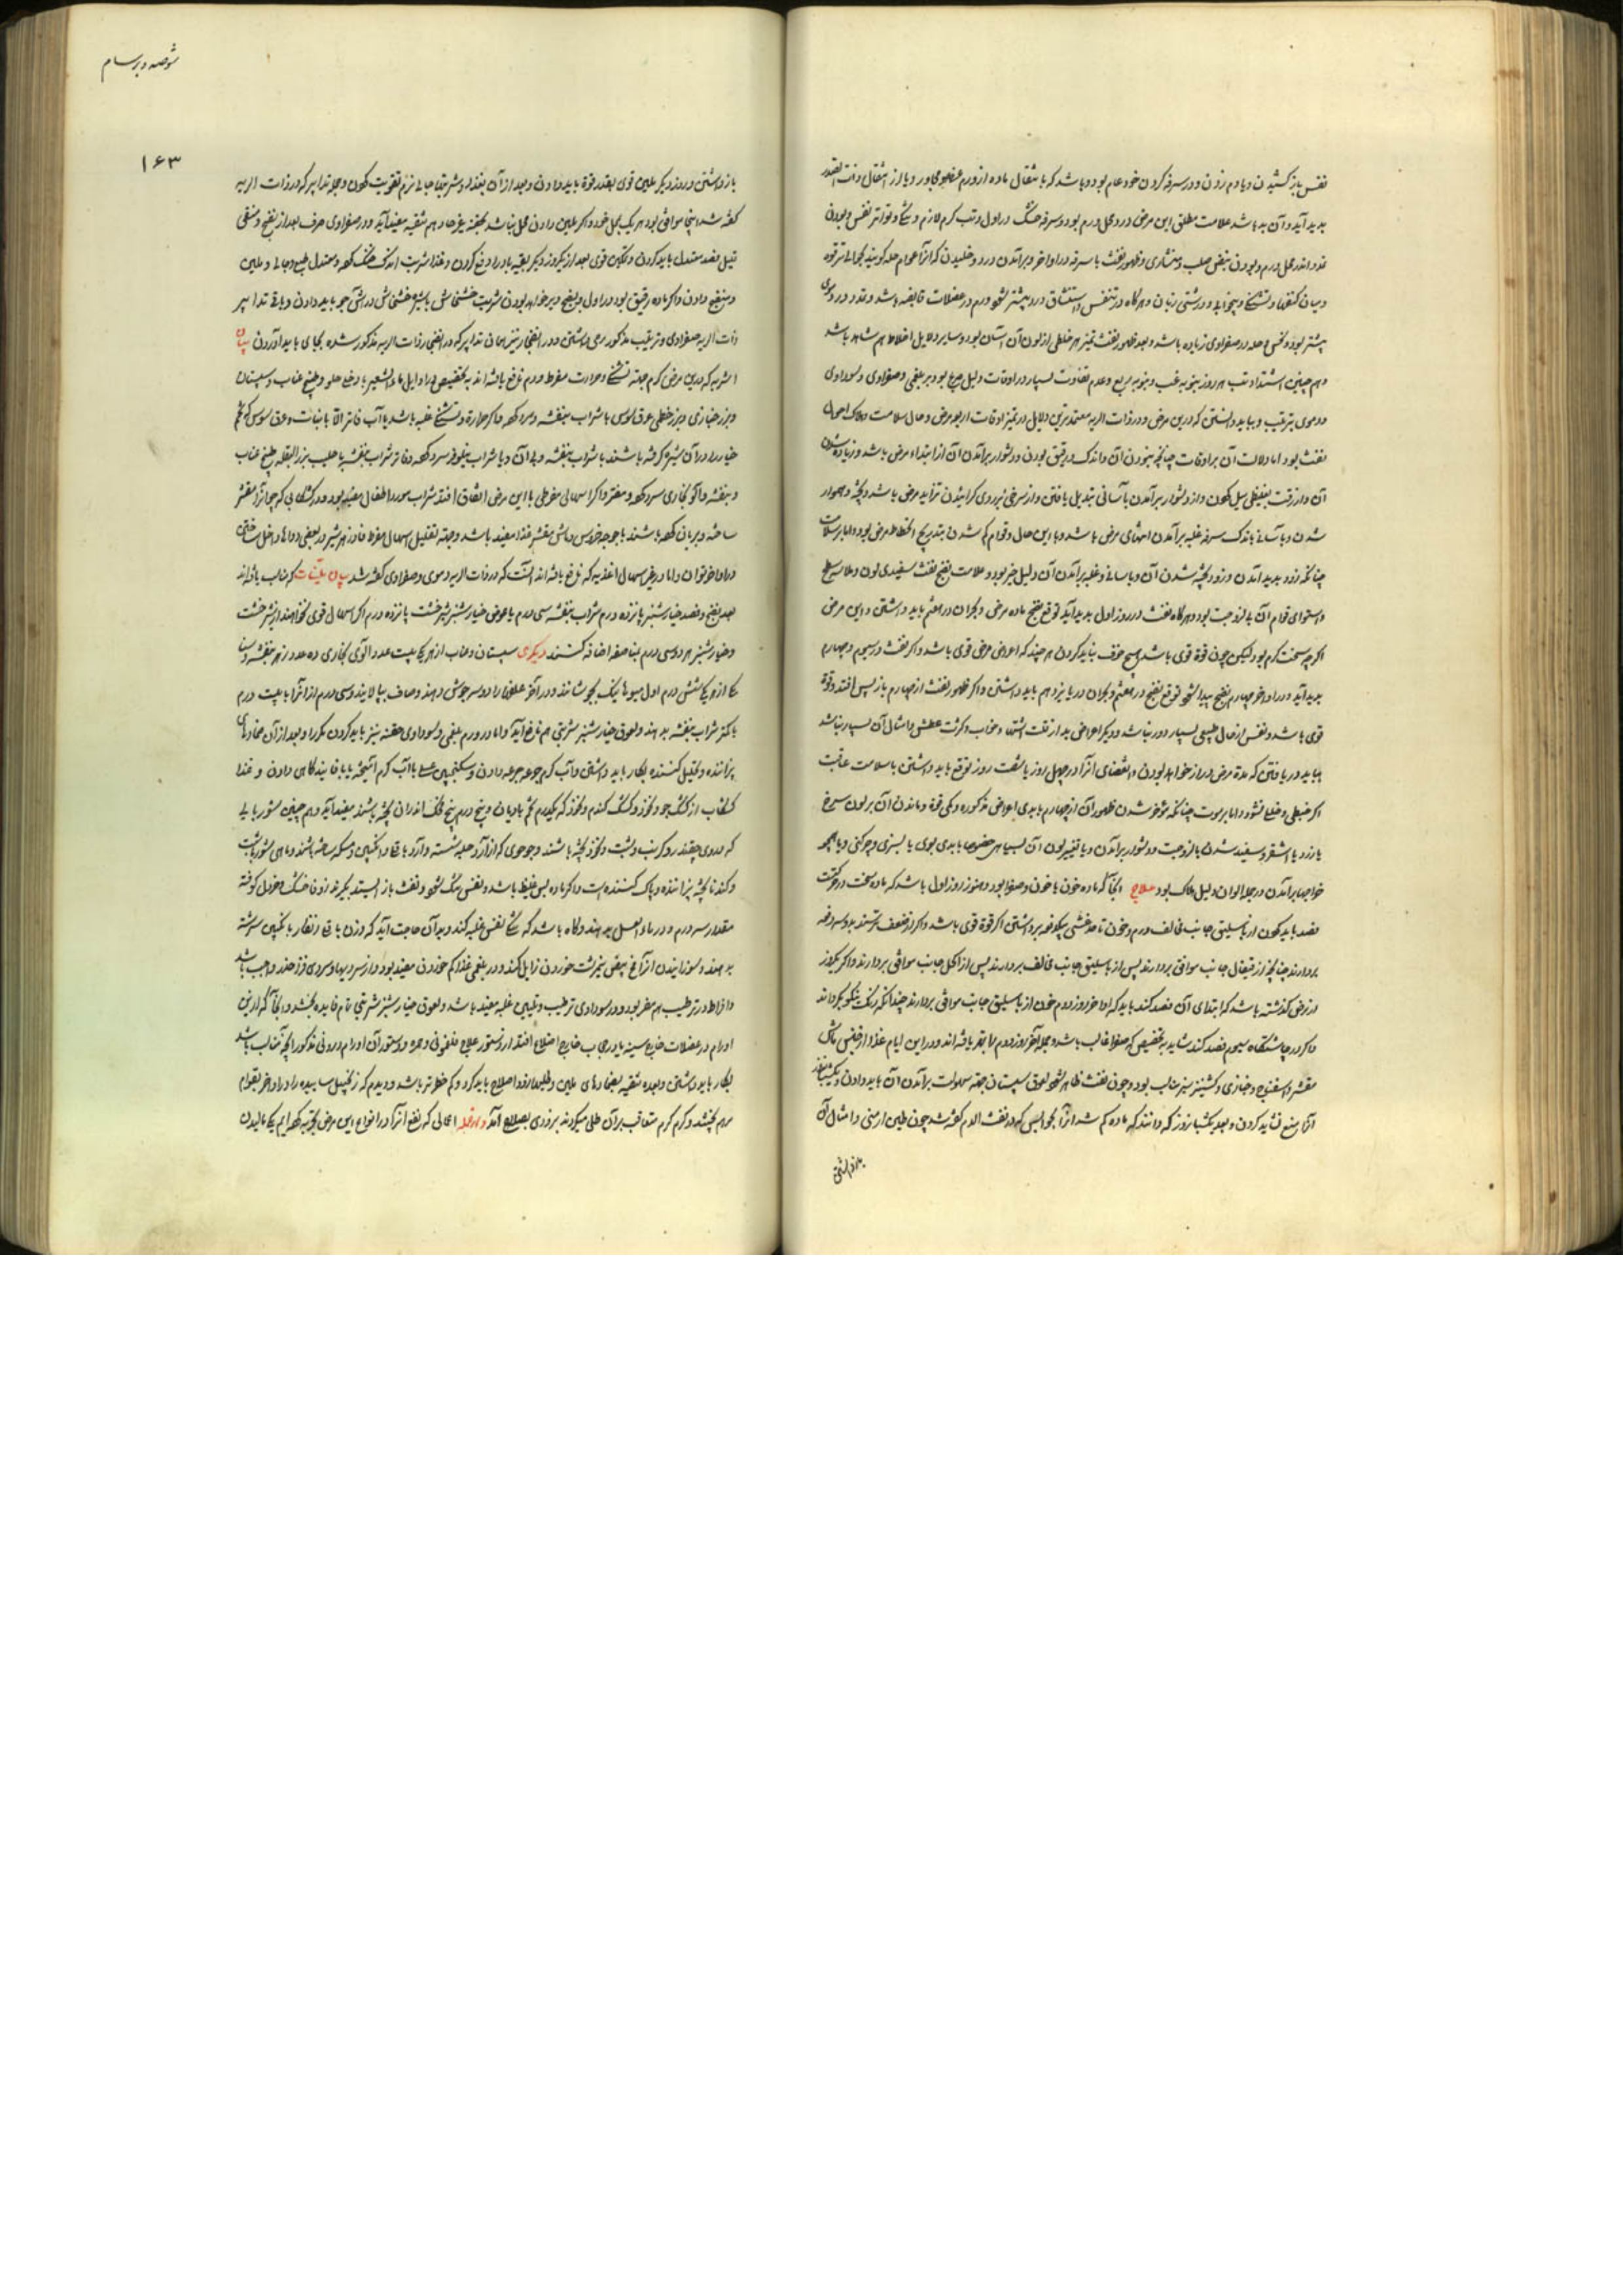 نفس باز کشیدن و یا دم زدن و در سرفه کردن خود عام بود و باشد که با انتقال ماده از ورم عضوی مجاور و یا از انتقال ذات
پدید آید و آن بد باشد علامت مطلق این مرض درد محل ورم بود و سرفه خشک در اول و تب گرم لازم و تشنگی و تواتر نفس و بودن
تمدد اندر محل ورم و بودن نبض صلب و منشاری و ظهور نفث با سرفه در اواخر و برآمدن درد و خلیدن که
میان کتفها و تشنگی و بیخوابی و درشتی زبان و هرگاه در تنفس و استنشاق درد بیشتر شود ورم در عضلات قابضه باشد و تمدد در
بیشتر بود و نخس و در صفراوی زیاده باشد و بعد ظهور نفث تمیز هر خلطی از لون آن آسان بود و سایر دلایل اخلاط هم شاهد باشد
و هم چنین اشتداد تب هر روز بنوبه غب و بنوبه ربع و عدم تفاوت بسیار در اوقات دلیل صریح بود بر بلغمی و صفراوی و سوداوی
و دموی بترتیب و بباید دانستن که درین مرض و در ذات الریه معتمدترین دلایل در تمیز اوقات اربعه مرض و حال سلامت و هلاک احوال
نفث بود اما دلالت آن بر اوقات چنانچه نبودن آن و اندک و رقیق بودن و دشوار برآمدن آن از ابتداء مرض باشد و زیاده شدن
آن و از رقت بغلیظی میل کردن و از دشوار برآمدن بآسانی تبدیل یافتن و از سرخی بزردی گراییدن تزاید مرض باشد و پخته و هموار
شدن و بآسانی باندک سرفه غلبه برآمدن انتهای مرض باشد و با این حال و قوام کم شدن بتدریج انحطاط مرض بود و اما بر سلامت
چنانکه زود پدید آمدن و زود پخته شدن آن و بآسانی و غلبه برآمدن آن دلیل خیر بود و علامت نضج نفث سفیدی لون و ملاست سطح
و استوای قوام آن بی لزوجت بود و هرگاه نفث در روز اول پدید آید توقع نضج ماده مرض و بحران در هفتم باید داشتن و این مرض
اگرچه سخت گرم بود لیکن چون قوة قوی باشد هیچ خوف نباید کردن هر چند که اعراض مرض قوی باشد و اگر نفث در سیوم و چهارم
پدید آید و در اواخر چهارم نضج پیدا شود توقع نضج در هفتم و بحران در یازدهم باید داشتن و اگر ظهور نفث از چهارم باز پس افتد و قوة
قوی باشد و نفس از حال طبیعی بسیار دور نباشد و دیگر اعراض بد از قلت اشتها و خواب و کثرت عطش و امثال آن بسیار نباشد
بباید دریافتن که مدة مرض دراز خواهد بودن و انقضای آنرا در چهل روز یا شصت روز توقع باید داشتن با سلامت عاقبت
اگر خبطی و خطایی نشود و اما بر موت چنانکه مؤخر شدن ظهور آن از چهارم با بدی اعراض مذکوره و کمی قوة و ماندن آن بر لون سرخ
یا زرد یا اشقر و سفید شدن با لزوجت و دشوار برآمدن و یا تغییر لون آن بسیاهی خصوصا با بدی بوی یا بسبزی و چرکنی و یا همچو
خوابها برآمدن در جمله الوان دلیل هلاک بود علاج آنجا که ماده خون یا خون و صفرا بود و هنوز روز اول باشد که ماده سخت در حرکت
فصد باید کردن از باسلیق جانب مخالف ورم و خون تا حد غشی بیکدفعه برداشتن اگر قوة قوی باشد و اگر از ضعف ترسند بدو سه دفعه
بردارند چنانچه از قیفال جانب موافق بردارند پس از باسلیق جانب مخالف بردارند پس از اکحل جانب موافق بردارند و اگر یکروز
از مرض گذشته باشد که ابتدای آن فصد کنند باید که اواخر روز دوم خون از باسلیق جانب موافق بردارند چندانکه رنگ نیکو بگرداند
و اگر در چاشتگاه سیوم فصد کنند شاید بتخصیص که صفرا غالب باشد و جمله آخر روز دوم را بتجربه یافته اند و در این ایام غذا از جنس ماش
مقشر و اسفناج و خبازی و کشنیز سبز مناسب بود و چون نفث ظاهر شود لعوق سپستان جهته سهولت برآمدن آن باید دادن و
آنرا منع نشاید کردن و بعد یکشبانروز که دانند که ماده کم شد آنرا بحوابسی که در نفث الدم گفته شد چون طین ارمنی و امثال آن
باز داشتن
شوصه و برسام
۱۶۳
باز داشتن و روز دیگر ملین قوی بقدر قوة باید دادن و بعد از آن بغذا و شربتها جالی نرم تقویت کردن و جمله تدابیر که در ذات الریه
گفته شد اینجا موافق بود هر یک بمحل خود و اگر ملین دادن محل نباشد بحقنه غیر حاد هم تنقیه مفید آید و در صفراوی صرف بعد از نضج و منقی
قبل فصد معتدل باید کردن و تسکین قوی بعد از یکروز دیگر بقیه ماده را دفع کردن و غذا و شربت اندک خنک کرده و معتدل طبع و جالی و ملین
و منضج دادن و اگر ماده رقیق بود در اول و نضج دیر خواهد بودن شربت خشخاش با شیره خشخاش در آش جو باید دادن و باقی تدابیر
ذات الریه صفراوی و ترتیب مذکور مرعی داشتن و در انفجار نیز همان تدابیر که در انفجار ذات الریه مذکور شده بجای باید آوردن بیان
اشربه که درین مرض گرم جهته تشنگی و حرارت مفرط و ورم نافع یافته اند بتخصیص در اوایل ماء الشعیر با روغن حلو و طبیخ عناب و سپستان
و بزر خبازی و بزر خطمی و عرق سوس با شراب بنفشه و سرد کرده و اگر حرارة و تشنگی غلبه باشد با آب فاتر الا با نبات و عرق سوس که تخم
خیار را در آن شیره گرفته باشند با شراب بنفشه و بی آن و یا شراب نیلوفر سرد کرده و فاتر شراب بنفشه با حلیب بزر البقله طبیخ عناب
و بنفشه و آلو بخاری سرد کرده و مفتر و اگر اسهالی مفرطی با این مرض اتفاق افتد شراب مورد اطفال مفید بود و در کشکابی که جو آنرا مقشر
ساخته و بریان کرده باشند با جوجه خروس و ماش مقشر غذا مفید باشد و جهته تقلیل اسهال مفرط فادزهر شیر در بعضی دواها داخل ساختن
در اواخر توان و اما در غیر اسهال اغذیه که نافع یافته اند آنست که در ذات الریه دموی و صفراوی گفته شد بیان ملینات که مناسب یافته اند
بعد نضج و فصد خیار شنبر پانزده درم شراب بنفشه سی درم یا عوض خیار شنبر شیر خشت پانزده درم اگر اسهال قوی خواهند از شیر خشت
و خیار شنبر هر دو سی درم بمناصفه اضافه کنند دیگری سپستان و عناب از هر یکی بیست عدد آلوی بخاری ده عدد زهر بنفشه و سنا
مکی از هر یکی شش درم اول میوها نیک بجوشانند و در آخر علفها را دو سه جوش دهند و صاف بپالایند و سی درم از آنرا با بیست درم
یا کمتر شراب بنفشه بدهند و لعوق خیار شنبر شربتی هم نافع آید و اما در ورم بلغمی و سوداوی حقنه نیز باید کردن مکررا و بعد از آن ضمادهای
پزاننده و تحلیل کننده بکار باید داشتن و آب گرم جرعه جرعه دادن و سکنجبین عسلی با آب گرم آمیخته یا با فانید گاهی دادن و غذا
کشکاب از کشک جو و نخود و کشک گندم و نخود که یکدرم تخم بادیان و پنج درم پنج انگشت اندران پخته باشند مفید آید و هم چنین شوربایی
که در وی چقندر و کرنب و شبت و نخود پخته باشند و جو حوی که از آرد حلبه شسته و آرد باقلا و انگبین و مسکه ساخته باشند و ماهی شور با شبت
و گندنا پخته پزاننده و پاک کننده است و اگر ماده بس غلیظ باشد و نفس تنگ شود و نفث باز ایستد بگیرند زوفا خشک و خردل کوفته
مقدار سه درم و در ماء العسل بدهند و گاه باشد که تنگی نفس غلبه کند و بدان حاجت آید که وزن باقلا زنگار با انگبین سرشته
بدهند و سوزانیدن آنرا مخ بیض نیمبرشت خوردن زایل کند و در بلغمی غذا کم خوردن مفید بود و از سردیها و سردی فزا حذر واجب باشد
و افراط در ترطیب هم مضر بود و در سوداوی ترطیب و تلیین غلبه مفید باشد و لعوق خیار شنبر شربتی تام فایده بخشد و آنجا که از این
اورام در عضلات خارج سینه یا در حجاب خارج اضلاع افتد از دستور علاج فلغمونی و حمره و دستور آن اورام درونی مذکور آنچه مناسب باشد
بکار باید داشتن و بعده تنقیه بضمادهای ملین و طلیها ازو اصلاح باید کرد و کم خطرتر باشد و دیدم که زنجبیل ساییده را در اواخر بقوام
مرهم پختند و گرم گرم متعاقب بر آن طلی میکردند بزودی بصلاح آمد و اعمالی که نفع آنرا در انواع این مرض بتجربه کرده ایم یکی مالیدن